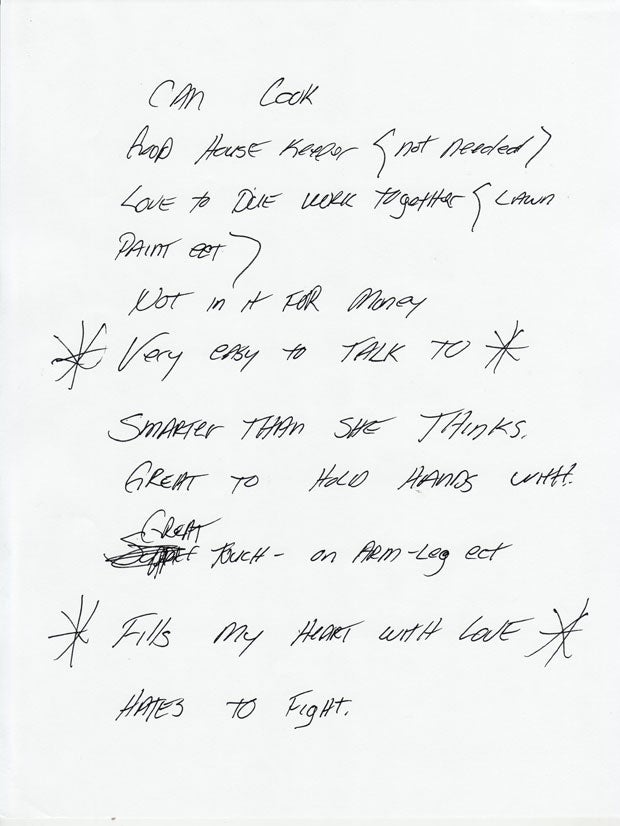 CAN COOK
GOOD HOUSE KeePer {not needed}
LOVE to DUE WORK TOgetHer { LAWN
PAINT ect }
NOT in it FOR Money
* Very easy to TALK TO *
SMARTer THAN SHE THINKS.
GREAT TO HOLD HANDS WITH.
GREAT
TOUCH - on ARM-Leg ect
* Fills my HEART WITH LOVE *
HATES TO FigHT.